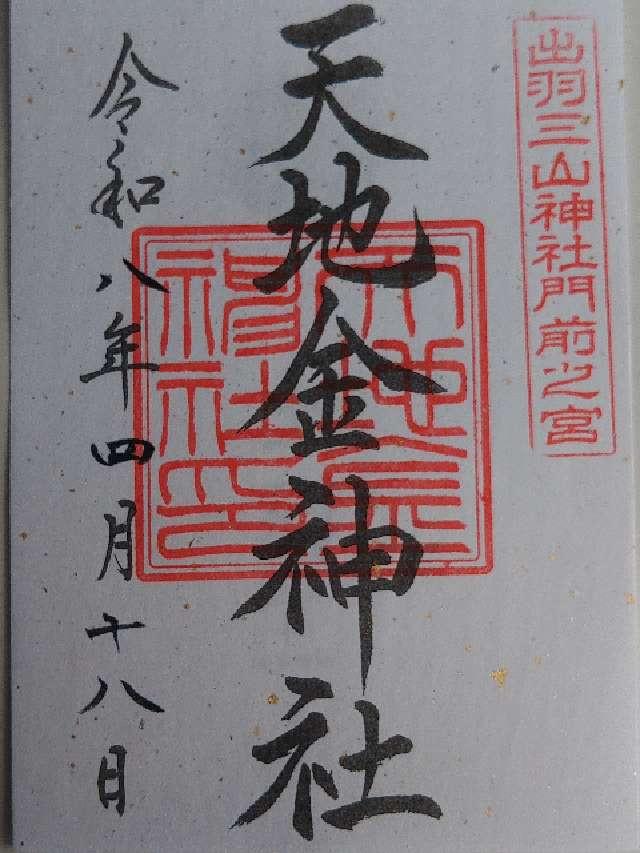 出羽三山神社門前之宮
天地金神社
令和八年四月十八日